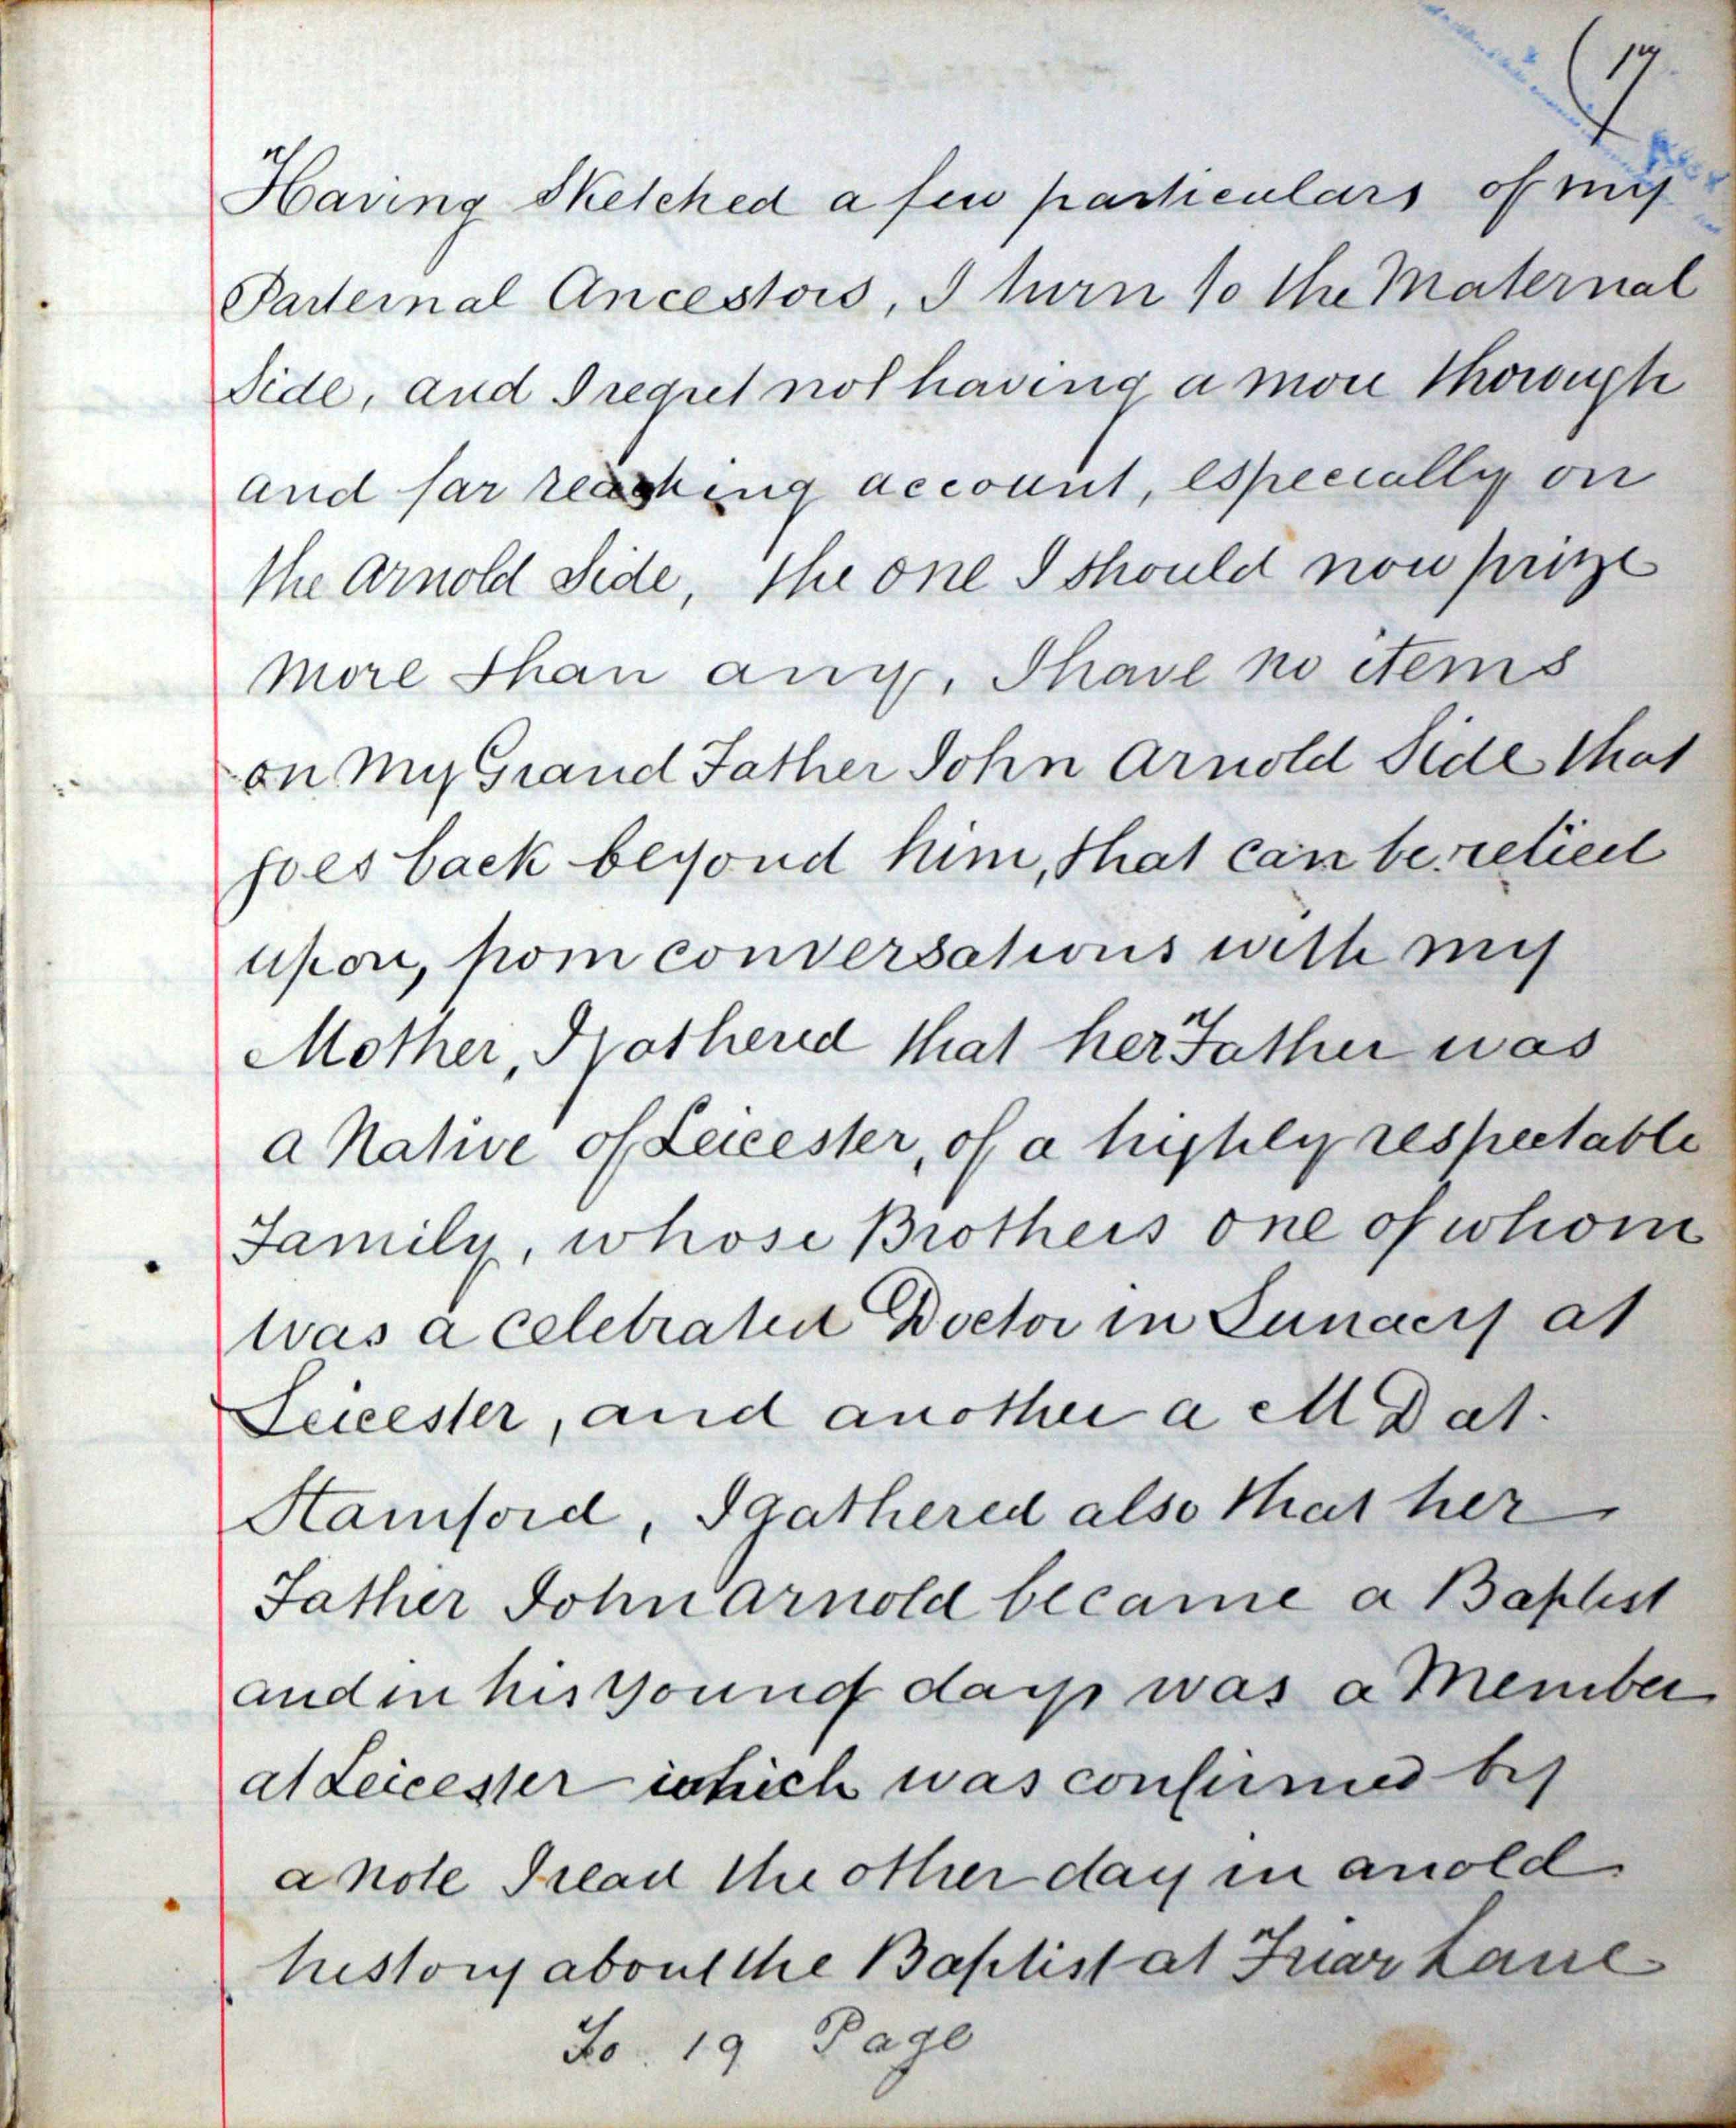 (17
Having Sketched a few particulars of my
Parternal Ancestors, I turn to the Maternal
Side, and I regret not having a more thorough
and far reaching account, especially on
the Arnold Side, the one I should now prize
more than any, I have no items
on my Grand Father John Arnold Side that
goes back beyond him, that can be relied
upon, from conversations with my
Mother, I gathered that her Father was
a Native of Leicester, of a highly respectable
Family, whose Brothers one of whom
was a celebrated Doctor in Lunacy at
Leicester, and another a M D at.
Stamford, I gathered also that her
Father John Arnold became a Baptist
and in his young days was a Member
at Leicester which was confirmed by
a note I read the other day in an old
history about the Baptist at Friar Lane
To. 19 Page